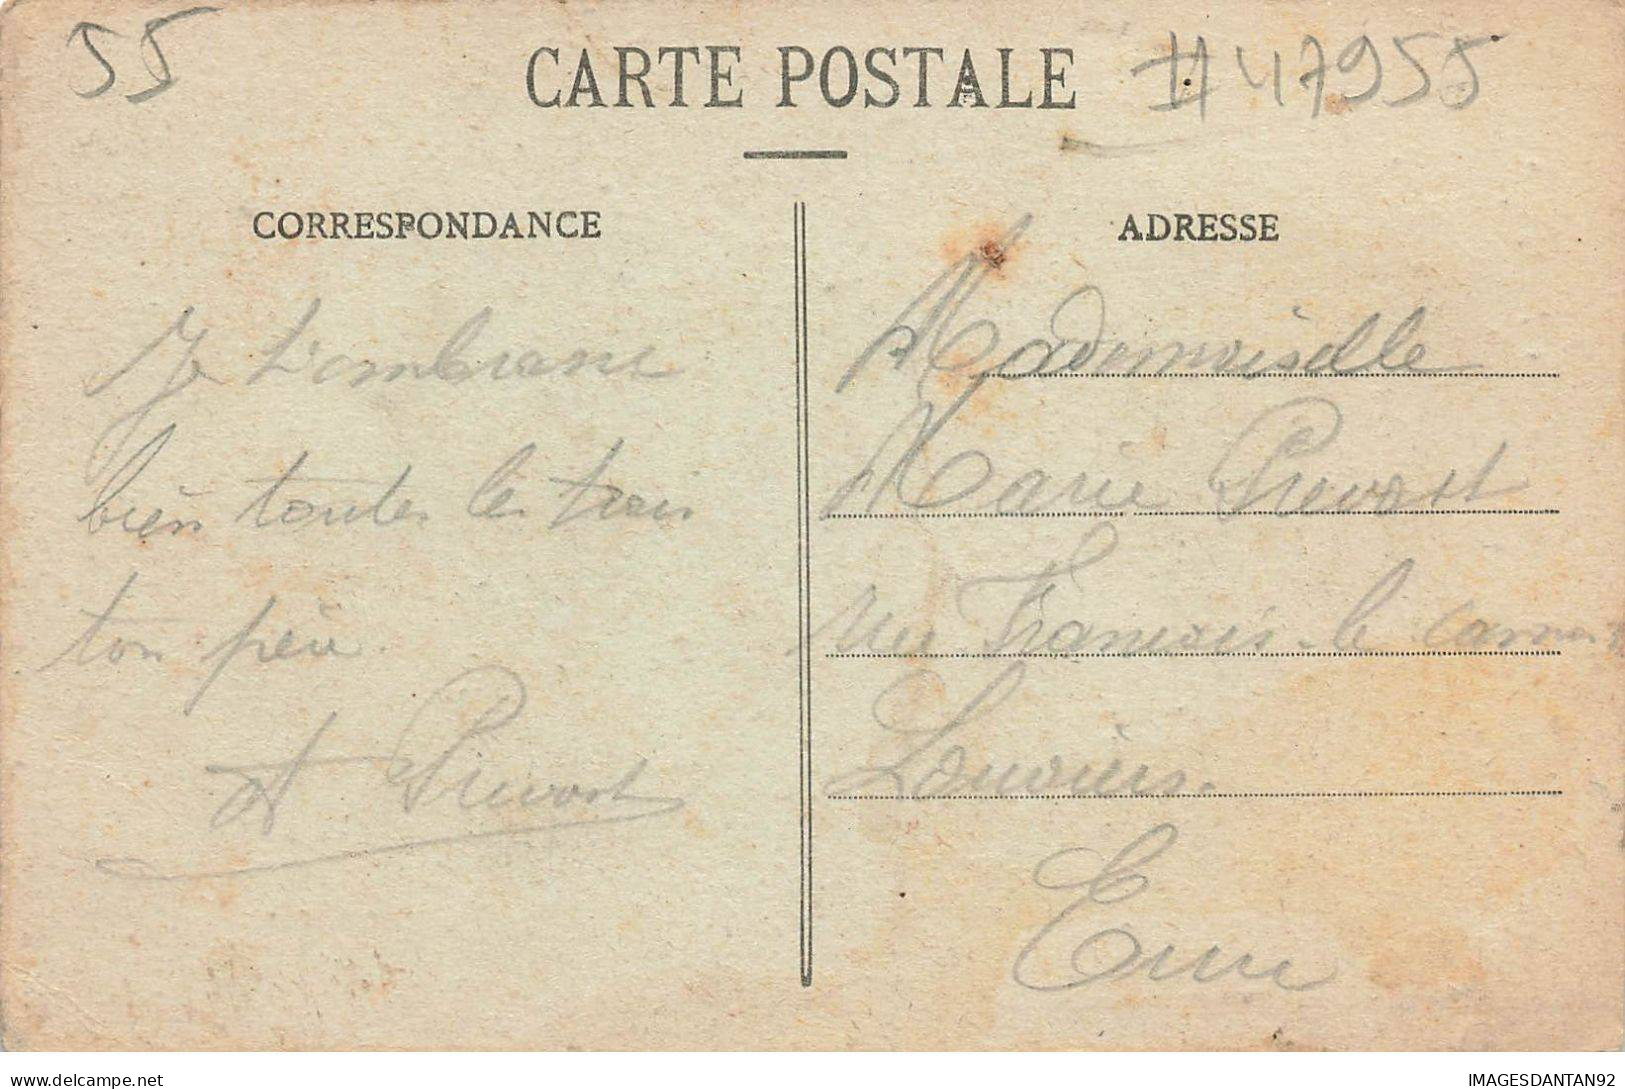 55
CARTE POSTALE
#47955
CORRESPONDANCE
Je t'embrasse
bien toutes les trois
ton père.
A Prevost
ADRESSE
Mademoiselle
Marie Prevost
rue François le
Louviers.
Eure
delcampe.net
IMAGESDANTAN92